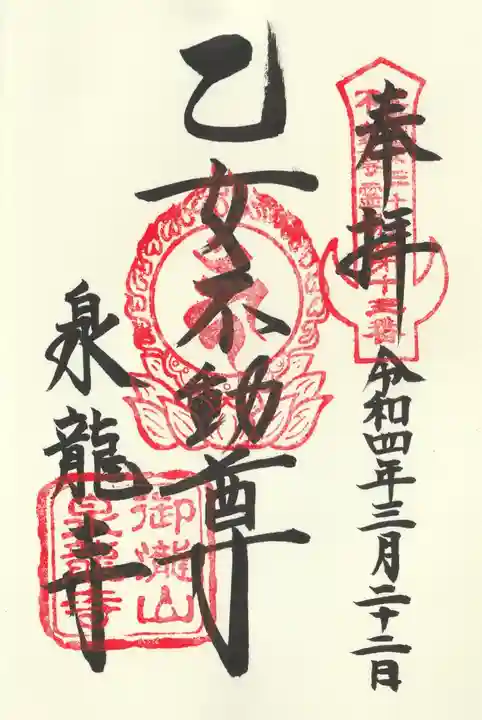 奉拝
令和四年三月二十二日
乙女不動尊
泉龍寺
御瀧山
泉龍寺